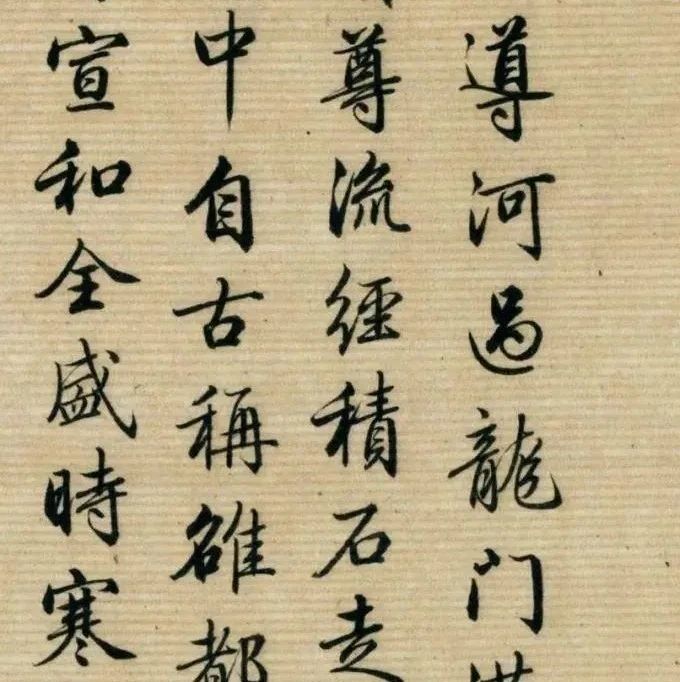 導河過龍門
尊流經積石走
中自古稱雒都
宣和全盛時寒